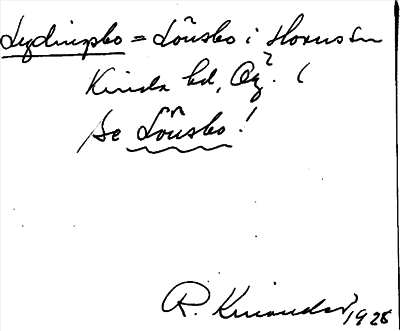 Lydingsbo = Lönsbo i Horns sn
Kinda hd, Ög. (
Se Lönsbo!
R. Kinander 1928